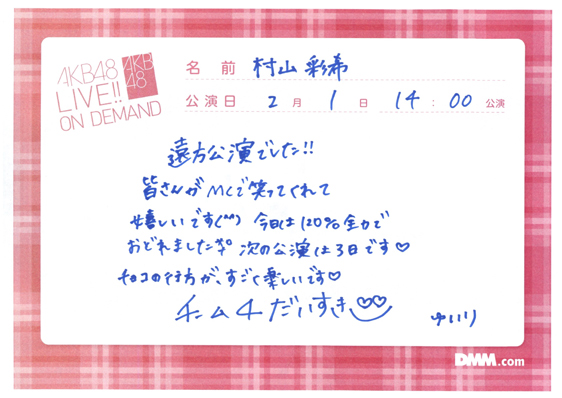 AKB48
LIVE!!
ON DEMAND
AKB
48
名前 村山彩希
公演日 2月1日 14:00公演
遠方公演でした!!
皆さんがMCで笑ってくれて
嬉しいです(^^) 今日は120%全力で
おどれました 次の公演は3日です♡
チョコの行方が、すごく楽しいです♡
チーム４だいすき♡♡
ゆいり
DMM.com